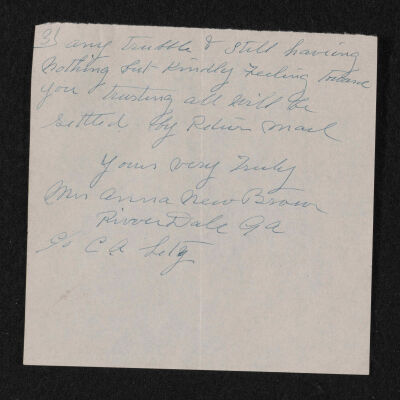 3) any trubble & still haveing
Nothing but Kindly Feeling
you trusting all will be
settled by Return mail
Yours very Truly
Mrs Anna New Brown
RiverDale Ga
c/o C A